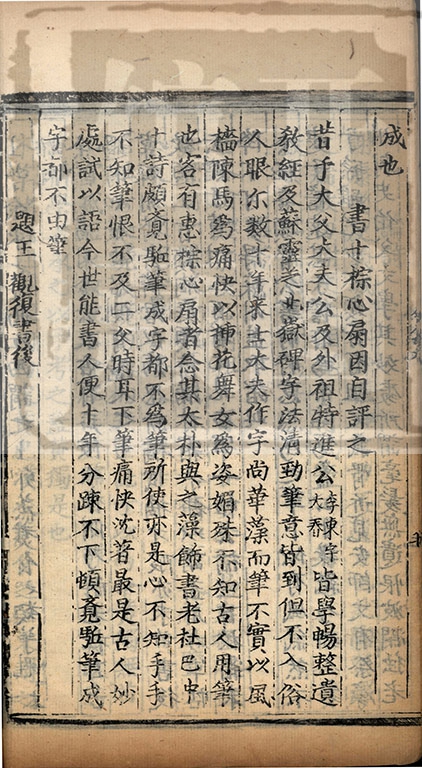 成也
書十㯶心扇因自評之
昔予大父大夫公及外祖特進公李東字大喬皆學暢整遺
敎經及蘇靈芝北嶽碑字法清勁筆意皆到但不入俗
人眼尔數十年來士大夫作字尚華藻而筆不實以風
檣陳馬爲痛快以插花舞女爲姿媚殊不知古人用筆
也客有惠椶心扇者念其太朴與之藻飾書老杜巴中
十詩頗覺驅筆成字都不爲筆所使亦是心不知手手
不知筆恨不及二父時耳下筆痛快沈著最是古人妙
處試以語今世能書人便十年分踈不下頓覺驅筆成
字都不由筆
題王觀復書後